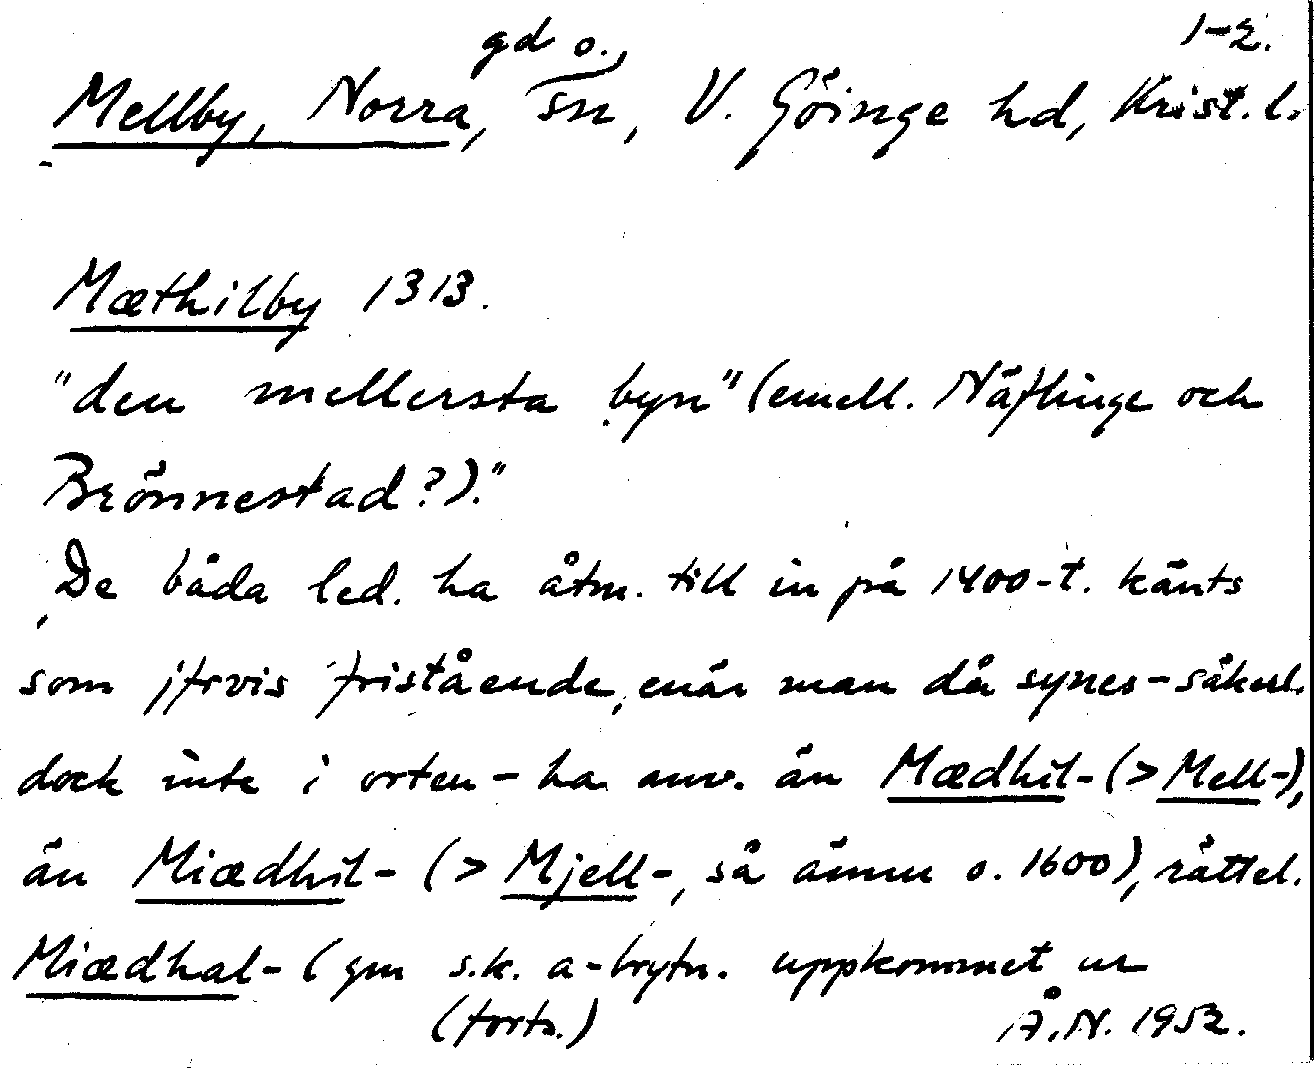 1-2.
gd o.
Mellby, Norra, sn, V. Göinge hd, Krist. l.
Mæthilby 1313.
"den mellersta byn" (emell. Näflinge och
Brönnestad?)."
De båda led. ha åtm. till in på 1400-t. känts
som jfrvis fristående, enär man då synes - säkerl.
dock inte i orten - ha anv. än Mædhil- (> Mell-),
än Miædhil- (> Mjell-, så ännu o. 1600), rättel.
Miædhal- (gm s.k. a-brytn. uppkommet ur
(forts.) Å.N. 1952.